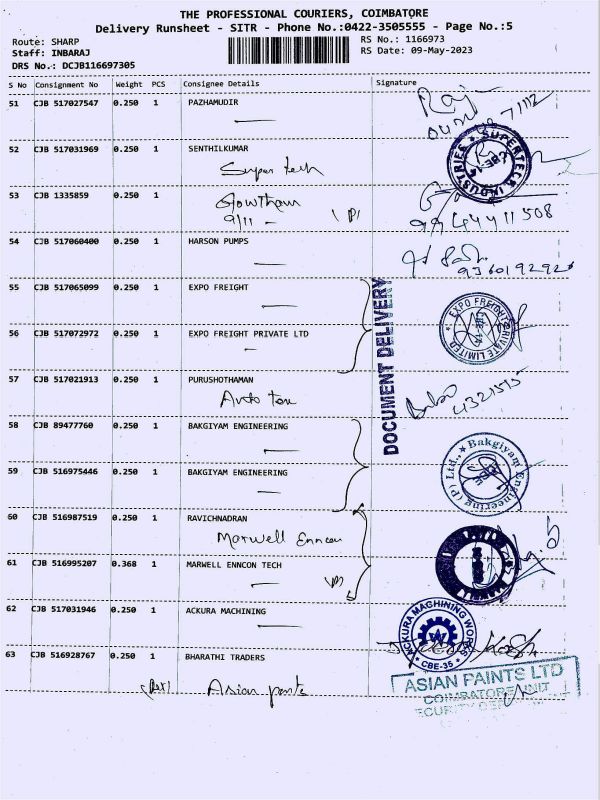 THE PROFESSIONAL COURIERS, COIMBATORE
Delivery Runsheet - SITR - Phone No.:0422-3505555 - Page No.:5
Route: SHARP
RS No.: 1166973
Staff: INBARAJ
RS Date: 09-May-2023
DRS No.: DCJB116697305
S No Consignment No Weight PCS Consignee Details Signature
51 CJB 517027547 0.250 1 PAZHAMUDIR
52 CJB 517031969 0.250 1 SENTHILKUMAR
Super tech
SUPERTECH INDUSTRIES
53 CJB 1335859 0.250 1 Gowtham
9944411508
54 CJB 517060400 0.250 1 HARSON PUMPS
55 CJB 517065099 0.250 1 EXPO FREIGHT
DOCUMENT DELIVERY
EXPO FREIGHT PRIVATE LIMITED
56 CJB 517072972 0.250 1 EXPO FREIGHT PRIVATE LTD
57 CJB 517021913 0.250 1 PURUSHOTHAMAN
58 CJB 89477760 0.250 1 BAKGIYAM ENGINEERING
Bakgiyam Engineering (P) Ltd.,
59 CJB 516975446 0.250 1 BAKGIYAM ENGINEERING
60 CJB 516987519 0.250 1 RAVICHNADRAN
Marwell Enncon
61 CJB 516995207 0.368 1 MARWELL ENNCON TECH
62 CJB 517031946 0.250 1 ACKURA MACHINING
ACKURA MACHINING WORKS
CBE-35
63 CJB 516928767 0.250 1 BHARATHI TRADERS
Asian
ASIAN PAINTS LTD
COIMBATORE UNIT